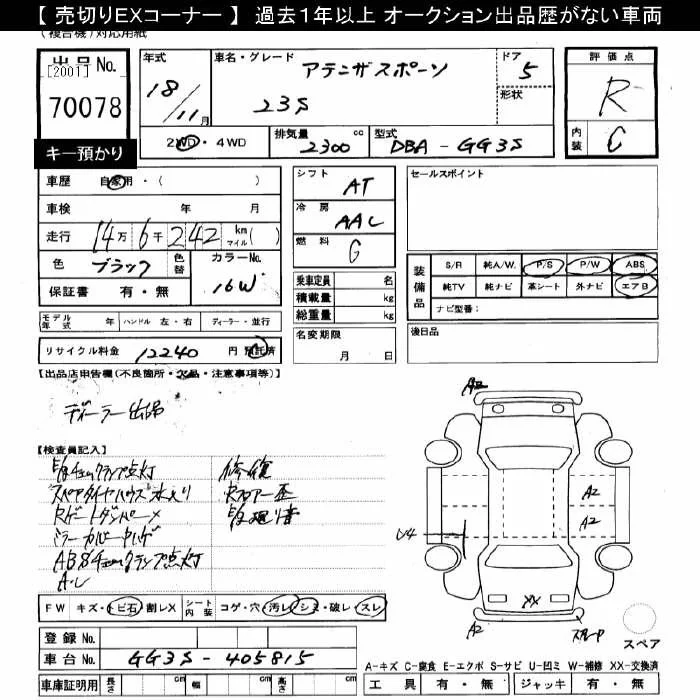 【 売切りEXコーナー 】 過去1年以上 オークション出品歴がない車両
(複合機)対応用紙
出品No. [2001]
70078
キー預かり
年式 18/11月
車名・グレード アテンザスポーツ 23S
ドア 5
形状
評価点 R
内装 C
2WD・4WD
排気量 2300 cc
型式 DBA-GG3S
車歴 自家用・( )
車検 年 月
走行 14万6千242 km マイル( )
色 ブラック 色替 カラーNo. 16W
保証書 有・無
モデル年式 年 ハンドル 左・右 ディーラー・並行
リサイクル料金 12240 円 預託済
シフト AT
冷房 AAC
燃料 G
乗車定員 名
積載量 kg
総重量 kg
名変期限 月 日
セールスポイント
装備品 S/R 純A/W. P/S P/W ABS
純TV 純ナビ 革シート 外ナビ エアB
ナビ型番:
後日品
【出品店申告欄(不良箇所・欠品・注意事項等)】
ディーラー出品
【検査員記入】
スペアタイヤハウス水入り
Rゲートダンパー×
ミラーカバー
修復
Rフロアー歪
A2
A2
A2
U4
XX
A2
スペア
FW キズ・トビ石・割レX シート内装 コゲ・穴・汚レ・シミ・破レ・スレ
登録No.
車台No. GG3S-405815
車庫証明用 長さ cm 幅 cm 高さ cm
A-キズ C-腐食 E-エクボ S-サビ U-凹ミ W-補修 XX-交換済
工具 有・無 ジャッキ 有・無